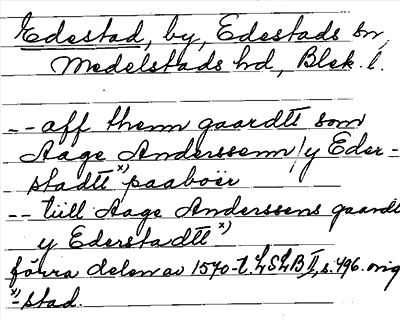 Edestad, by, Edestads sn,
Medelstads hd, Blek. l.
-- aff thenn gaardtt som
Aage Anderssenn /y Eder-
stadtt x) paaboër
-- till Aage Anderssens gaardt
y Ederstadtt x)
förra delen av 1570-t. LSLB II, s. 496. orig
x) -stad.